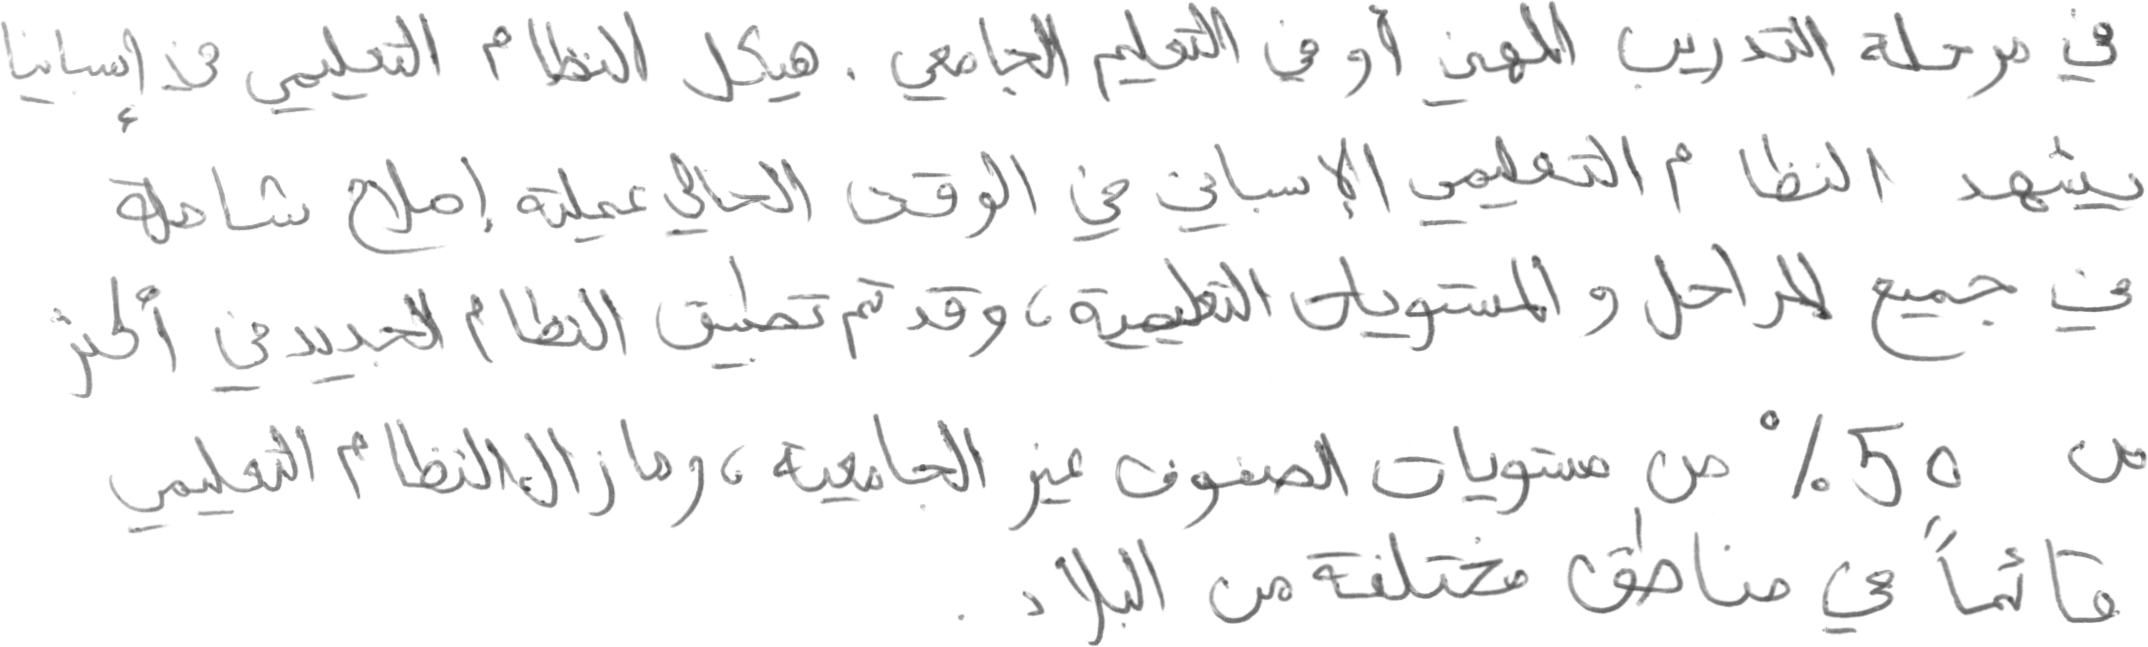 في مرحلة التدريب المهني أو في التعليم الجامعي . هيكل النظام التعليمي في إسبانيا
يشهد النظام التعليمي الإسباني في الوقت الحالي عملية إصلاح شاملة
في جميع المراحل و المستويات التعليمية ، وقد تم تطبيق النظام الجديد في أكثر
من 50 % من مستويات الصفوف غير الجامعية ، وما زال النظام التعليمي
قائماً في مناطق مختلفة من البلاد .